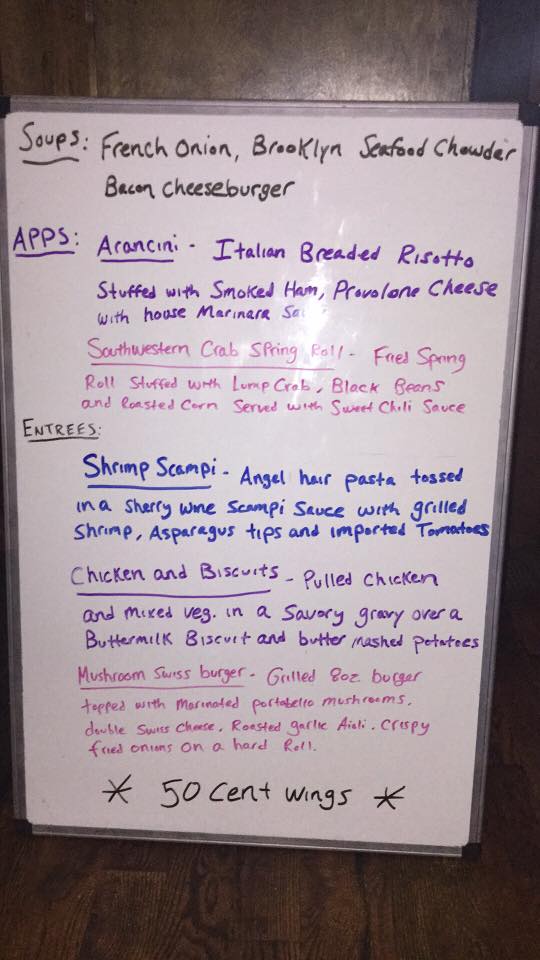 Soups: French Onion, Brooklyn Seafood Chowder
Bacon Cheeseburger
APPS: Arancini - Italian Breaded Risotto
Stuffed with Smoked Ham, Provolone Cheese
with house Marinara
Southwestern Crab Spring Roll - Fried Spring
Roll Stuffed with Lump Crab, Black Beans
and Roasted Corn Served with Sweet Chili Sauce
ENTREES:
Shrimp Scampi - Angel hair pasta tossed
in a Sherry wine Scampi Sauce with grilled
Shrimp, Asparagus tips and imported Tomatoes
Chicken and Biscuits - Pulled Chicken
and mixed veg. in a Savory gravy over a
Buttermilk Biscuit and butter mashed potatoes
Mushroom Swiss burger - Grilled 8oz burger
topped with Marinated portabello mushrooms.
double Swiss Cheese, Roasted garlic Aioli. Crispy
fried onions on a hard Roll.
* 50 Cent Wings *